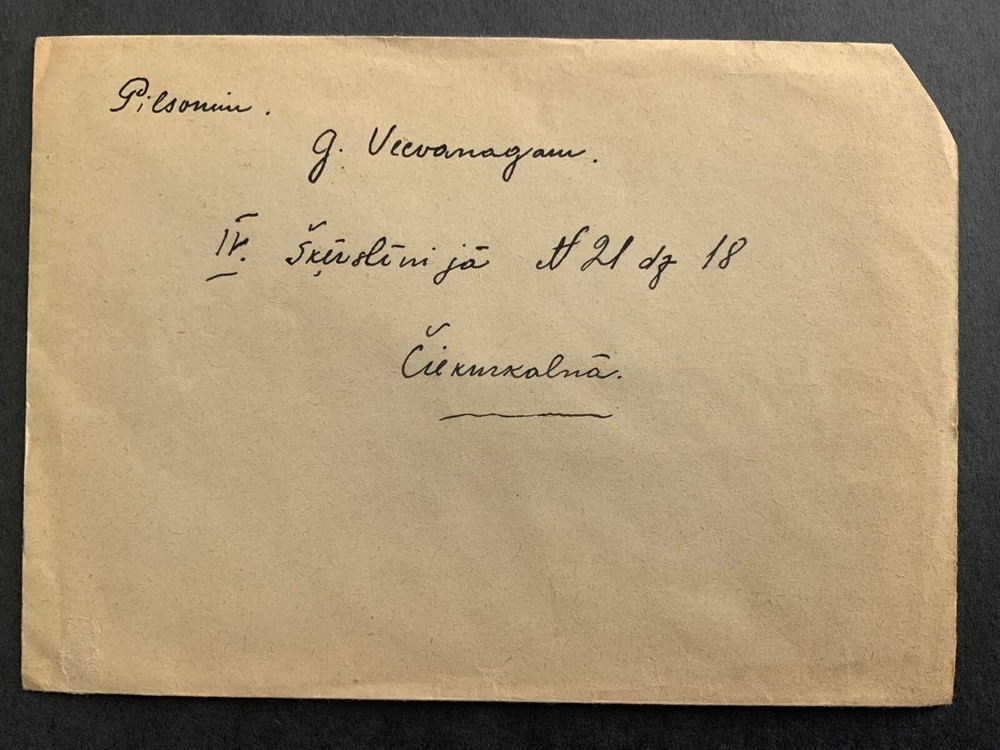 Pilsonim.
G. Veevanagam.
IV. Šķērslīnijā N 21 dz 18
Čiekurkalnā.